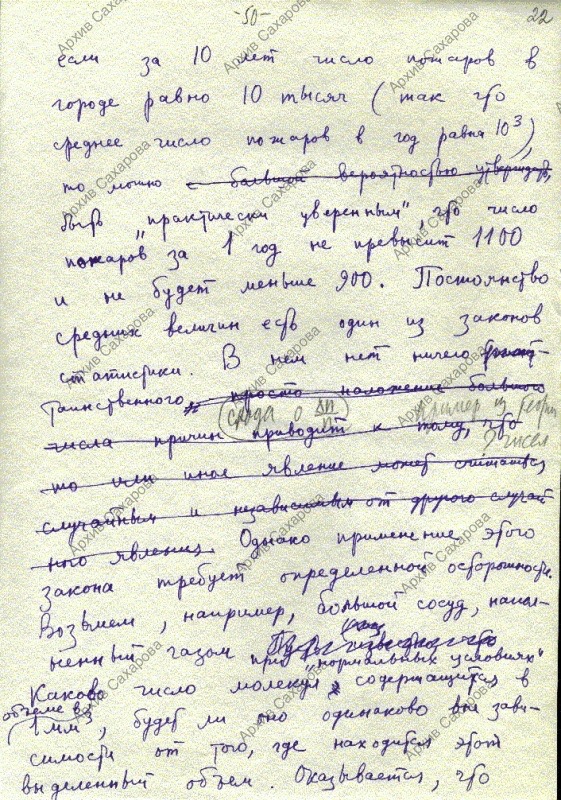 -50-
22
если за 10 лет число пожаров в
городе равно 10 тысяч (так что
среднее число пожаров в год равна 10³),
то можно с большой вероятностью утверждать,
быть „практически уверенным", что число
пожаров за 1 год не превысит 1100
и не будет меньше 900. Постоянство
средних величин есть один из законов
статистики. В нем нет ничего
таинственного, просто наложение большого
сюда о Δn/n пример из теории
чисел
числа причин приводит к тому, что
то или иное явление может считаться
случайным и независимым от другого случай
ного явления. Однако применение этого
закона требует определенной осторожности.
Возьмем, например, большой сосуд, напол-
ненный газом при „нормальных условиях"
Каково число молекул, содержащихся в
объеме в
1 мм³, будет ли оно одинаково вне зави-
симости от того, где находится этот
выделенный объем. Оказывается, что
Архив Сахарова